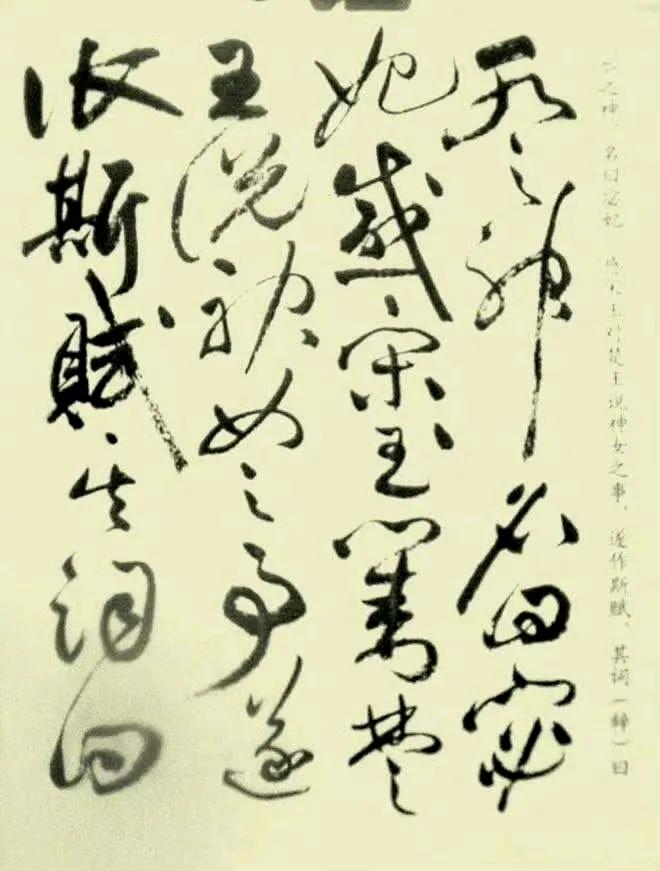 水之神，名曰宓妃 感宋玉对楚王说神女之事，遂作斯赋，其词（辞）曰
水之神名曰宓
妃感宋玉對楚
王說神女之事遂
作斯賦其詞曰